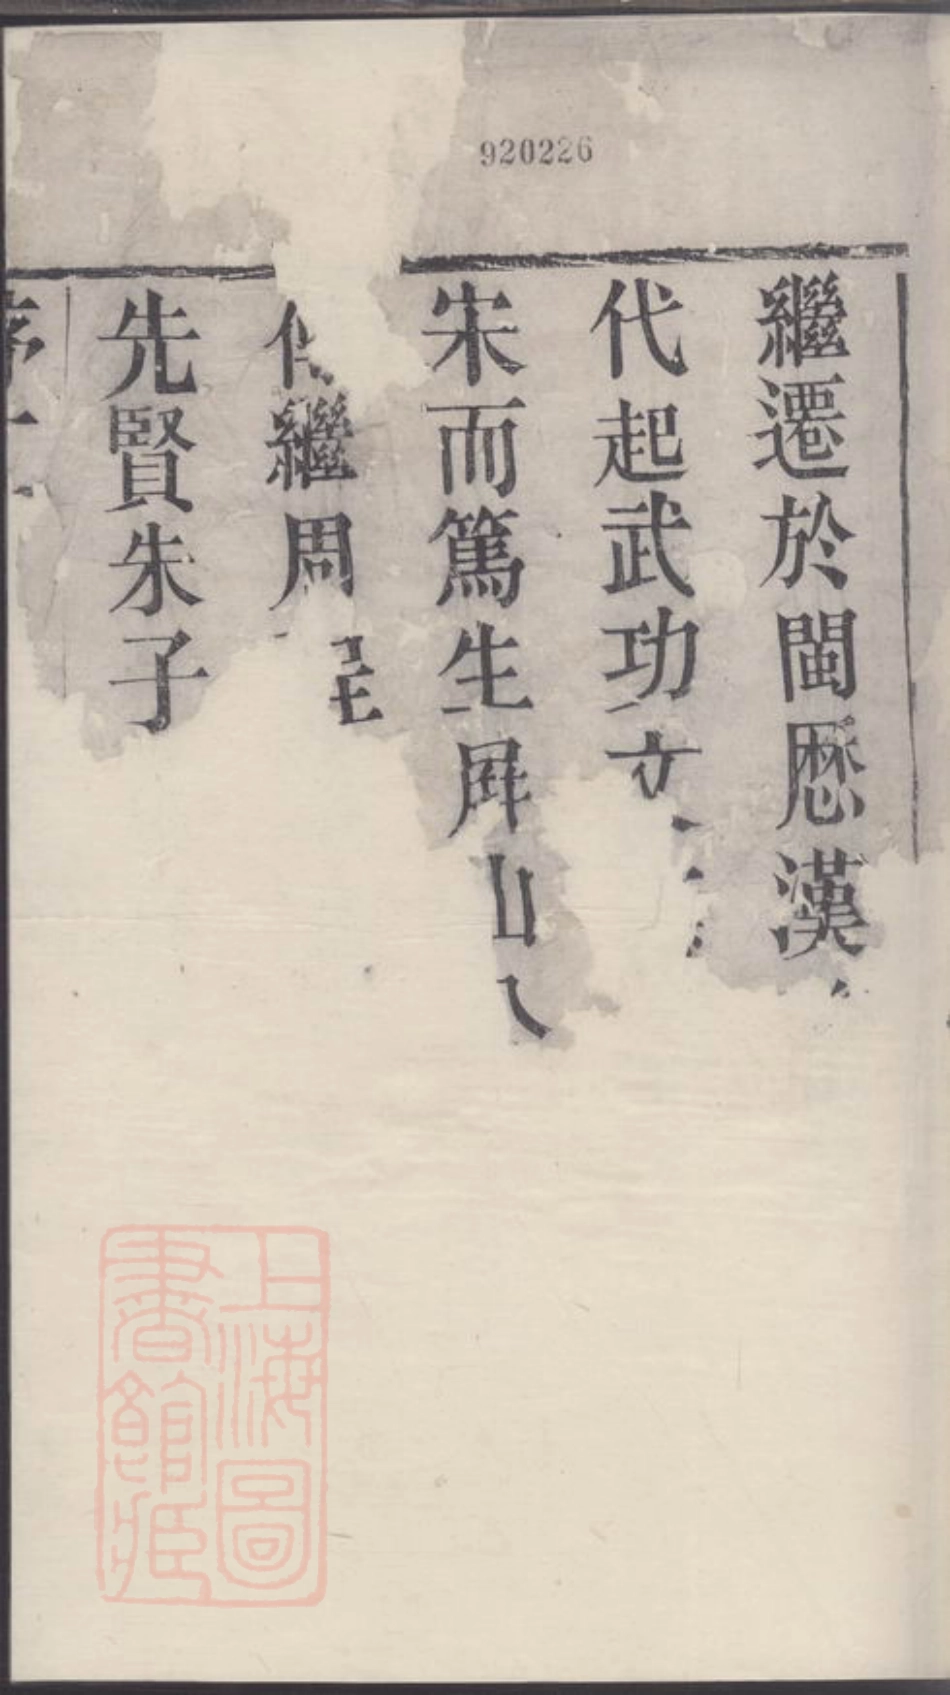 920226
繼遷於閩歷漢
代起武功文
宋而篤生屏山
繼周
先賢朱子
序
上海圖
書館藏